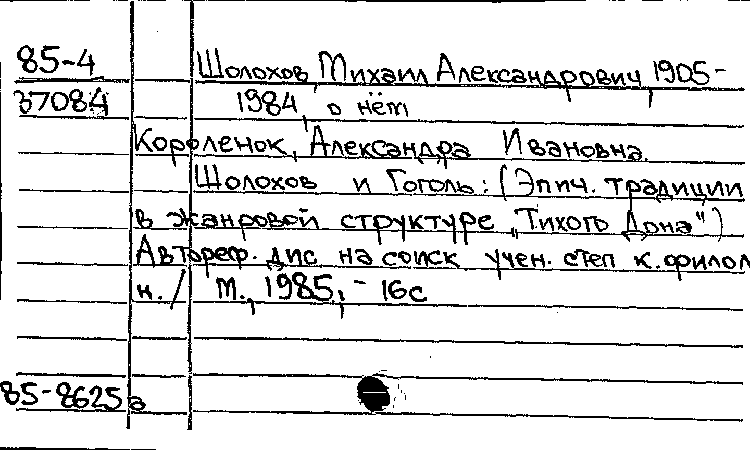 85-4 Шолохов, Михаил Александрович, 1905-
37084 1984, о нём
Короленок, Александра Ивановна.
Шолохов и Гоголь: (Эпич. традиции
в жанровой структуре „Тихого Дона")
Автореф. дис. на соиск учен. степ к. филол
н. / М., 1985, - 16с
85-8625а